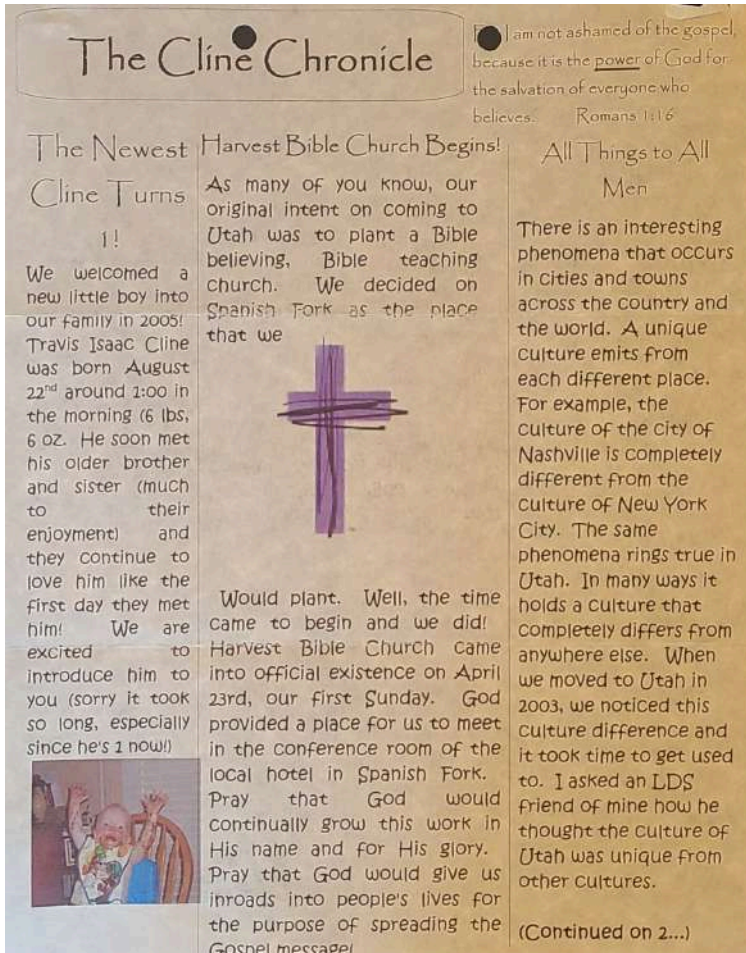 The Cline Chronicle
I am not ashamed of the gospel,
because it is the power of God for
the salvation of everyone who
believes. Romans 1:16
The Newest
Cline Turns
1!
We welcomed a
new little boy into
our family in 2005!
Travis Isaac Cline
was born August
22nd around 1:00 in
the morning (6 lbs,
6 oz. He soon met
his older brother
and sister (much
to their
enjoyment) and
they continue to
love him like the
first day they met
him! We are
excited to
introduce him to
you (sorry it took
so long, especially
since he's 1 now!)
Harvest Bible Church Begins!
As many of you know, our
original intent on coming to
Utah was to plant a Bible
believing, Bible teaching
church. We decided on
Spanish Fork as the place
that we
Would plant. Well, the time
came to begin and we did!
Harvest Bible Church came
into official existence on April
23rd, our first Sunday. God
provided a place for us to meet
in the conference room of the
local hotel in Spanish Fork.
Pray that God would
continually grow this work in
His name and for His glory.
Pray that God would give us
inroads into people's lives for
the purpose of spreading the
Gospel message!
All Things to All
Men
There is an interesting
phenomena that occurs
in cities and towns
across the country and
the world. A unique
culture emits from
each different place.
For example, the
culture of the city of
Nashville is completely
different from the
culture of New York
City. The same
phenomena rings true in
Utah. In many ways it
holds a culture that
completely differs from
anywhere else. When
we moved to Utah in
2003, we noticed this
culture difference and
it took time to get used
to. I asked an LDS
friend of mine how he
thought the culture of
Utah was unique from
other cultures.
(Continued on 2...)